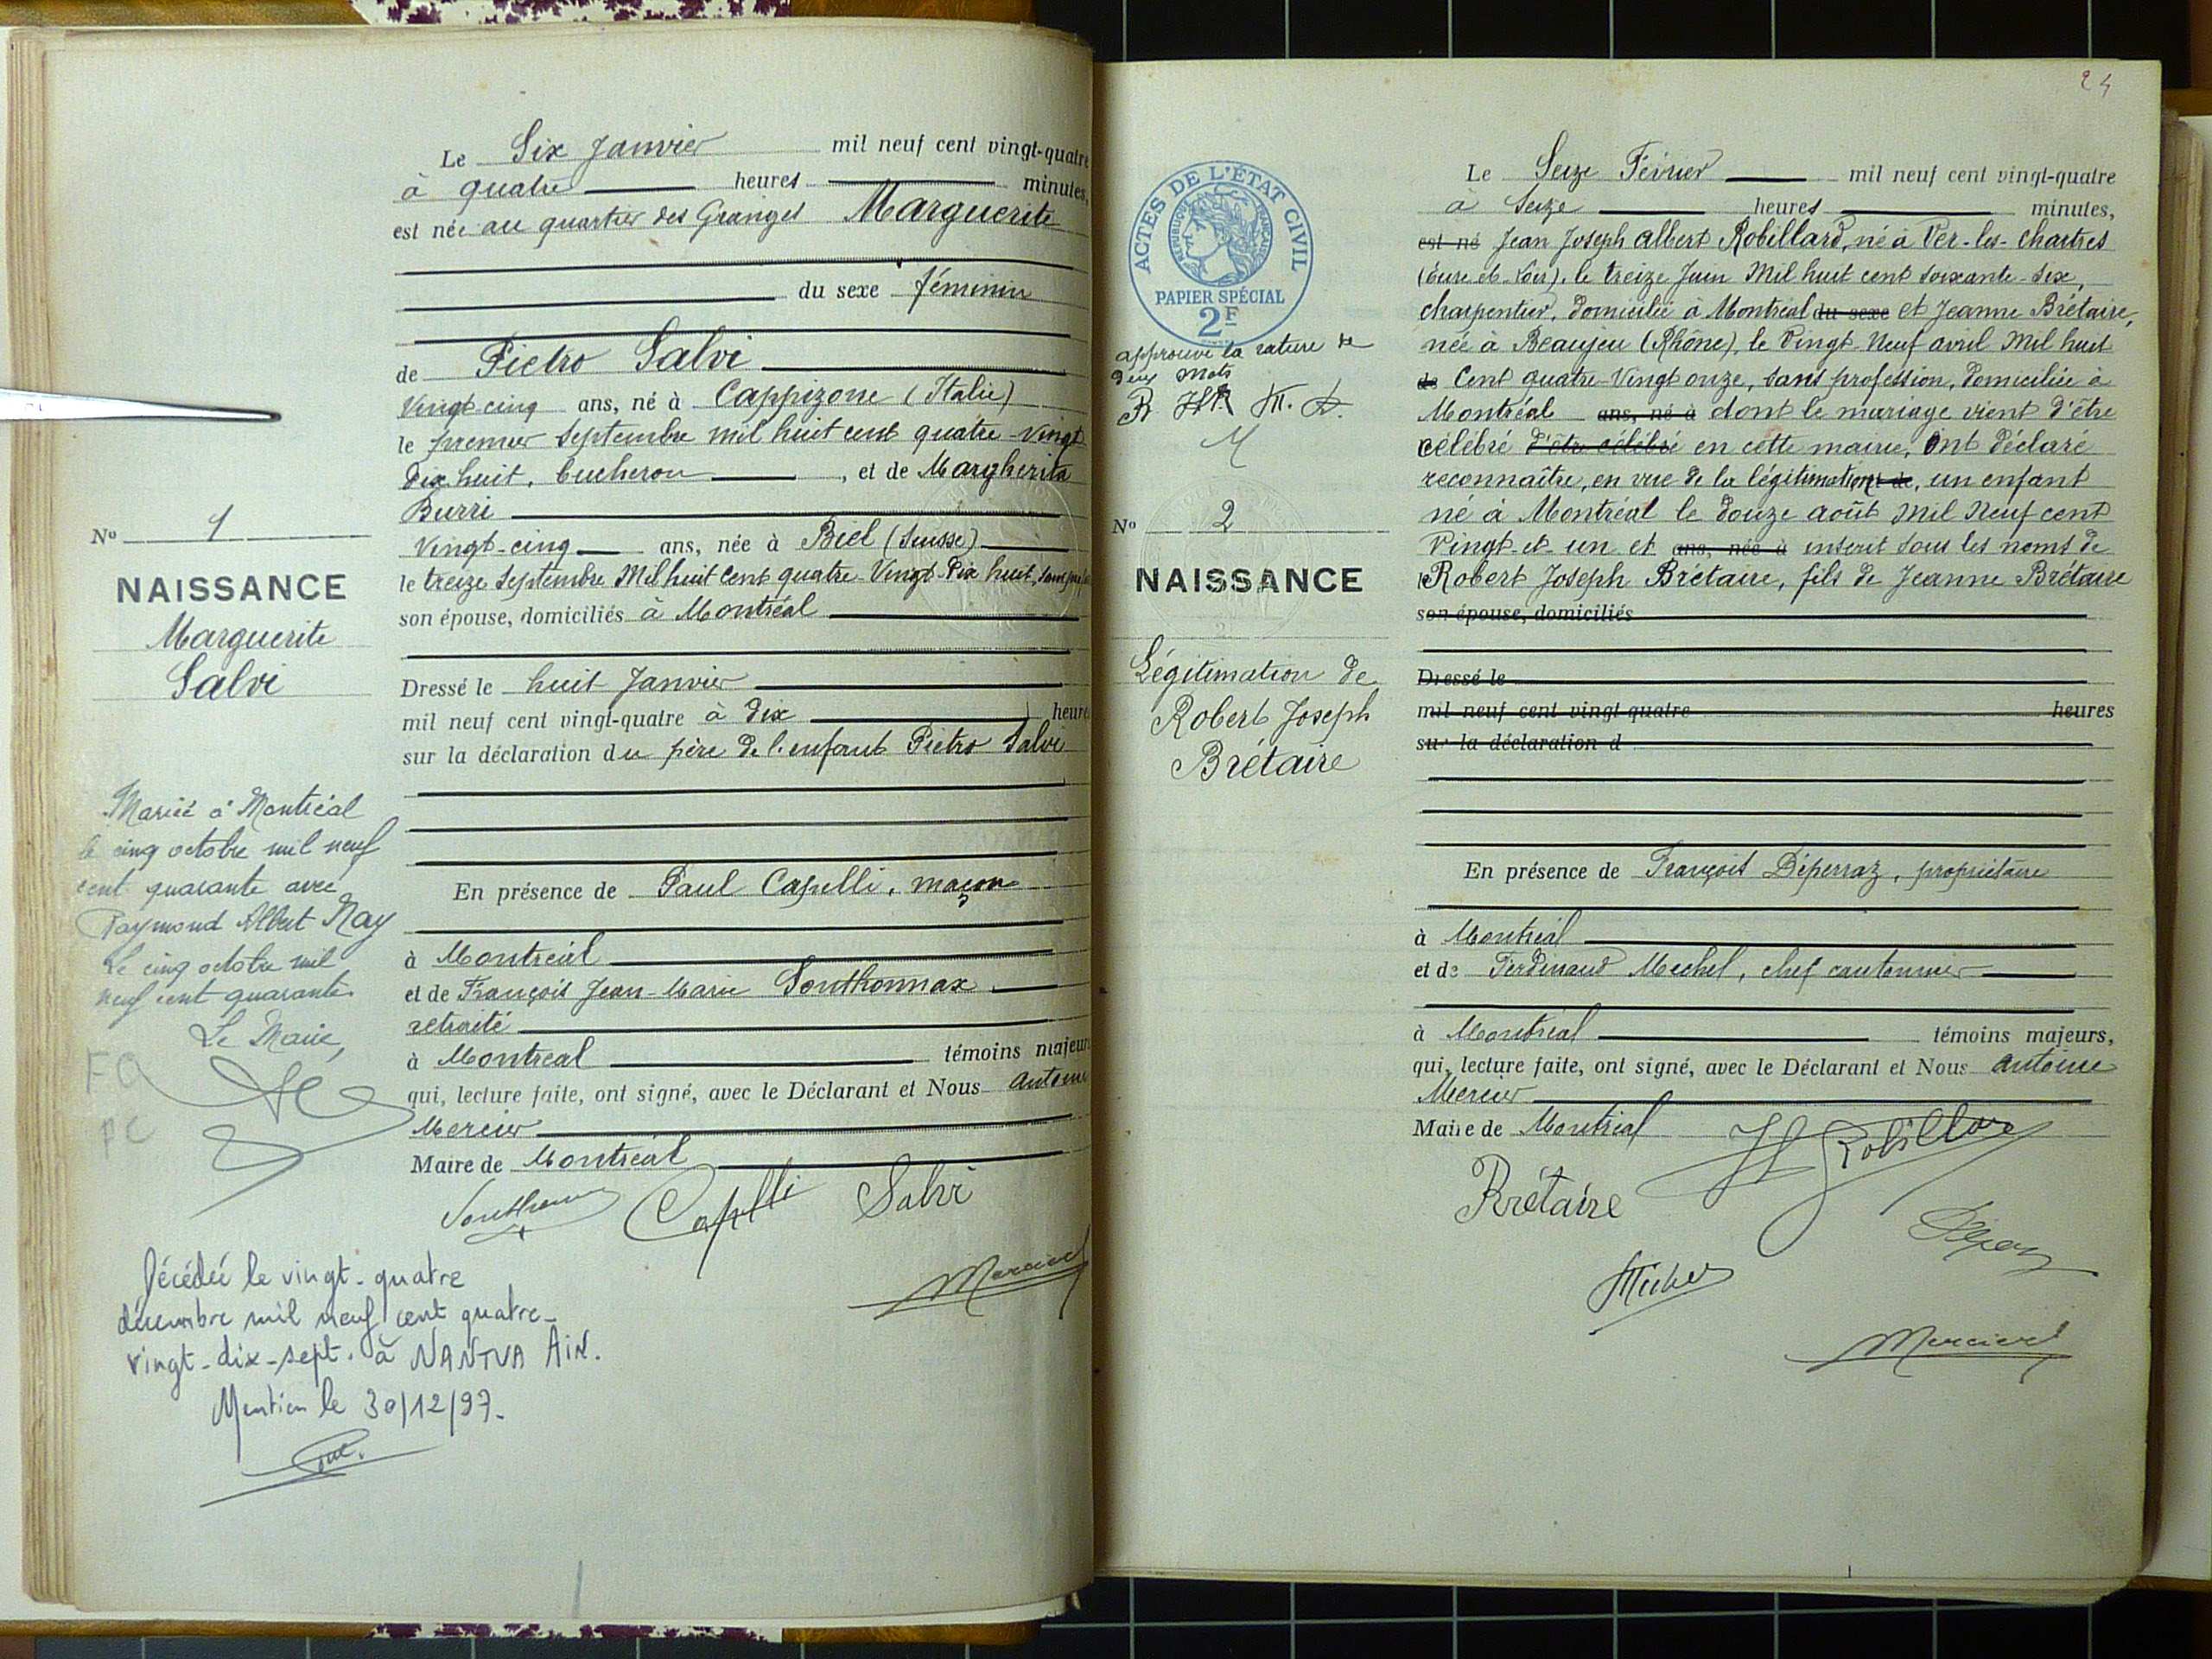 Le Six Janvier mil neuf cent vingt-quatre
à quatre heures minutes,
est née au quartier des Granges Marguerite
du sexe féminin
de Pietro Salvi
Vingt-cinq ans, né à Cappizone (Italie)
le premier Septembre mil huit cent quatre-vingt
dix huit, bucheron, et de Margherita
Burri
Vingt-cinq ans, née à Biel (Suisse)
le treize Septembre Mil huit Cent quatre-Vingt-Dix huit, sans
son épouse, domiciliés à Montréal
Dressé le huit Janvier
mil neuf cent vingt-quatre à dix heures
sur la déclaration du père de l'enfant Pietro Salvi
En présence de Paul Capelli, maçon
à Montréal
et de François Jean-Marie Sonthonnax
retraité
à Montréal témoins majeurs
qui, lecture faite, ont signé, avec le Déclarant et Nous Antoine
Mercier
Maire de Montréal
Capelli Salvi
Mercier
No 1
NAISSANCE
Marguerite
Salvi
Mariée à Montréal
le cinq octobre mil neuf
cent quarante avec
Raymond Albert Nay
Le cinq octobre mil
neuf cent quarante
Le Maire,
FA
PC
Décédée le vingt-quatre
décembre mil neuf cent quatre-
vingt-dix-sept. à NANTUA Ain.
Mention le 30/12/97.
24
ACTES DE L'ÉTAT CIVIL
RÉPUBLIQUE FRANÇAISE
PAPIER SPÉCIAL
2F
approuvé la rature de
deux mots
No 2
NAISSANCE
Légitimation de
Robert Joseph
Brétaire
Le Seize Février mil neuf cent vingt-quatre
à Seize heures minutes,
est né Jean Joseph Albert Robillard, né à Ver-les-Chartres
(Eure-et-Loir), le treize Juin Mil huit cent soixante-six,
charpentier, domicilié à Montréal du sexe et Jeanne Brétaire,
née à Beaujeu (Rhône), le Vingt-Neuf avril Mil huit
de Cent quatre-Vingt onze, sans profession, domiciliée à
Montréal ans, né à dont le mariage vient d'être
célébré d'être célébré en cette mairie, Ont déclaré
reconnaître, en vue de la légitimation et de, un enfant
né à Montréal le douze août mil Neuf cent
Vingt-et-un et ans, née à inscrit sous les noms de
le Robert Joseph Brétaire, fils de Jeanne Brétaire
son épouse, domiciliés
Dressé le
mil neuf cent vingt-quatre heures
sur la déclaration d
En présence de François Déperraz, propriétaire
à Montréal
et de Ferdinand Michel, chef cantonnier
à Montréal témoins majeurs,
qui, lecture faite, ont signé, avec le Déclarant et Nous Antoine
Mercier
Maire de Montréal
Robillard
Brétaire
Michel
Mercier